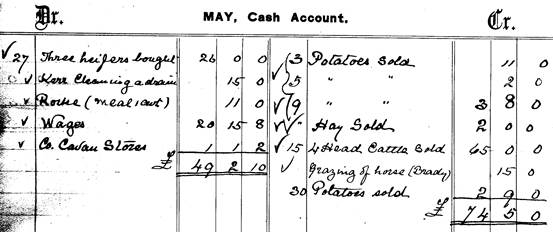 Dr. MAY, Cash Account. Cr.
27 Three heifers bought 26 0 0
Kerr Cleaning a drain 15 0
Rorke (meal 11 0
Wages 20 15 8
Co. Cavan Stores 1 1 2
£ 49 2 10
3 Potatoes sold 11 0
5 " " 2 0
9 " " 3 8 0
" Hay Sold 2 0 0
15 4 Head Cattle Sold 65 0 0
Grazing of horse (Brady) 15 0
30 Potatoes sold 2 9 0
£ 74 5 0